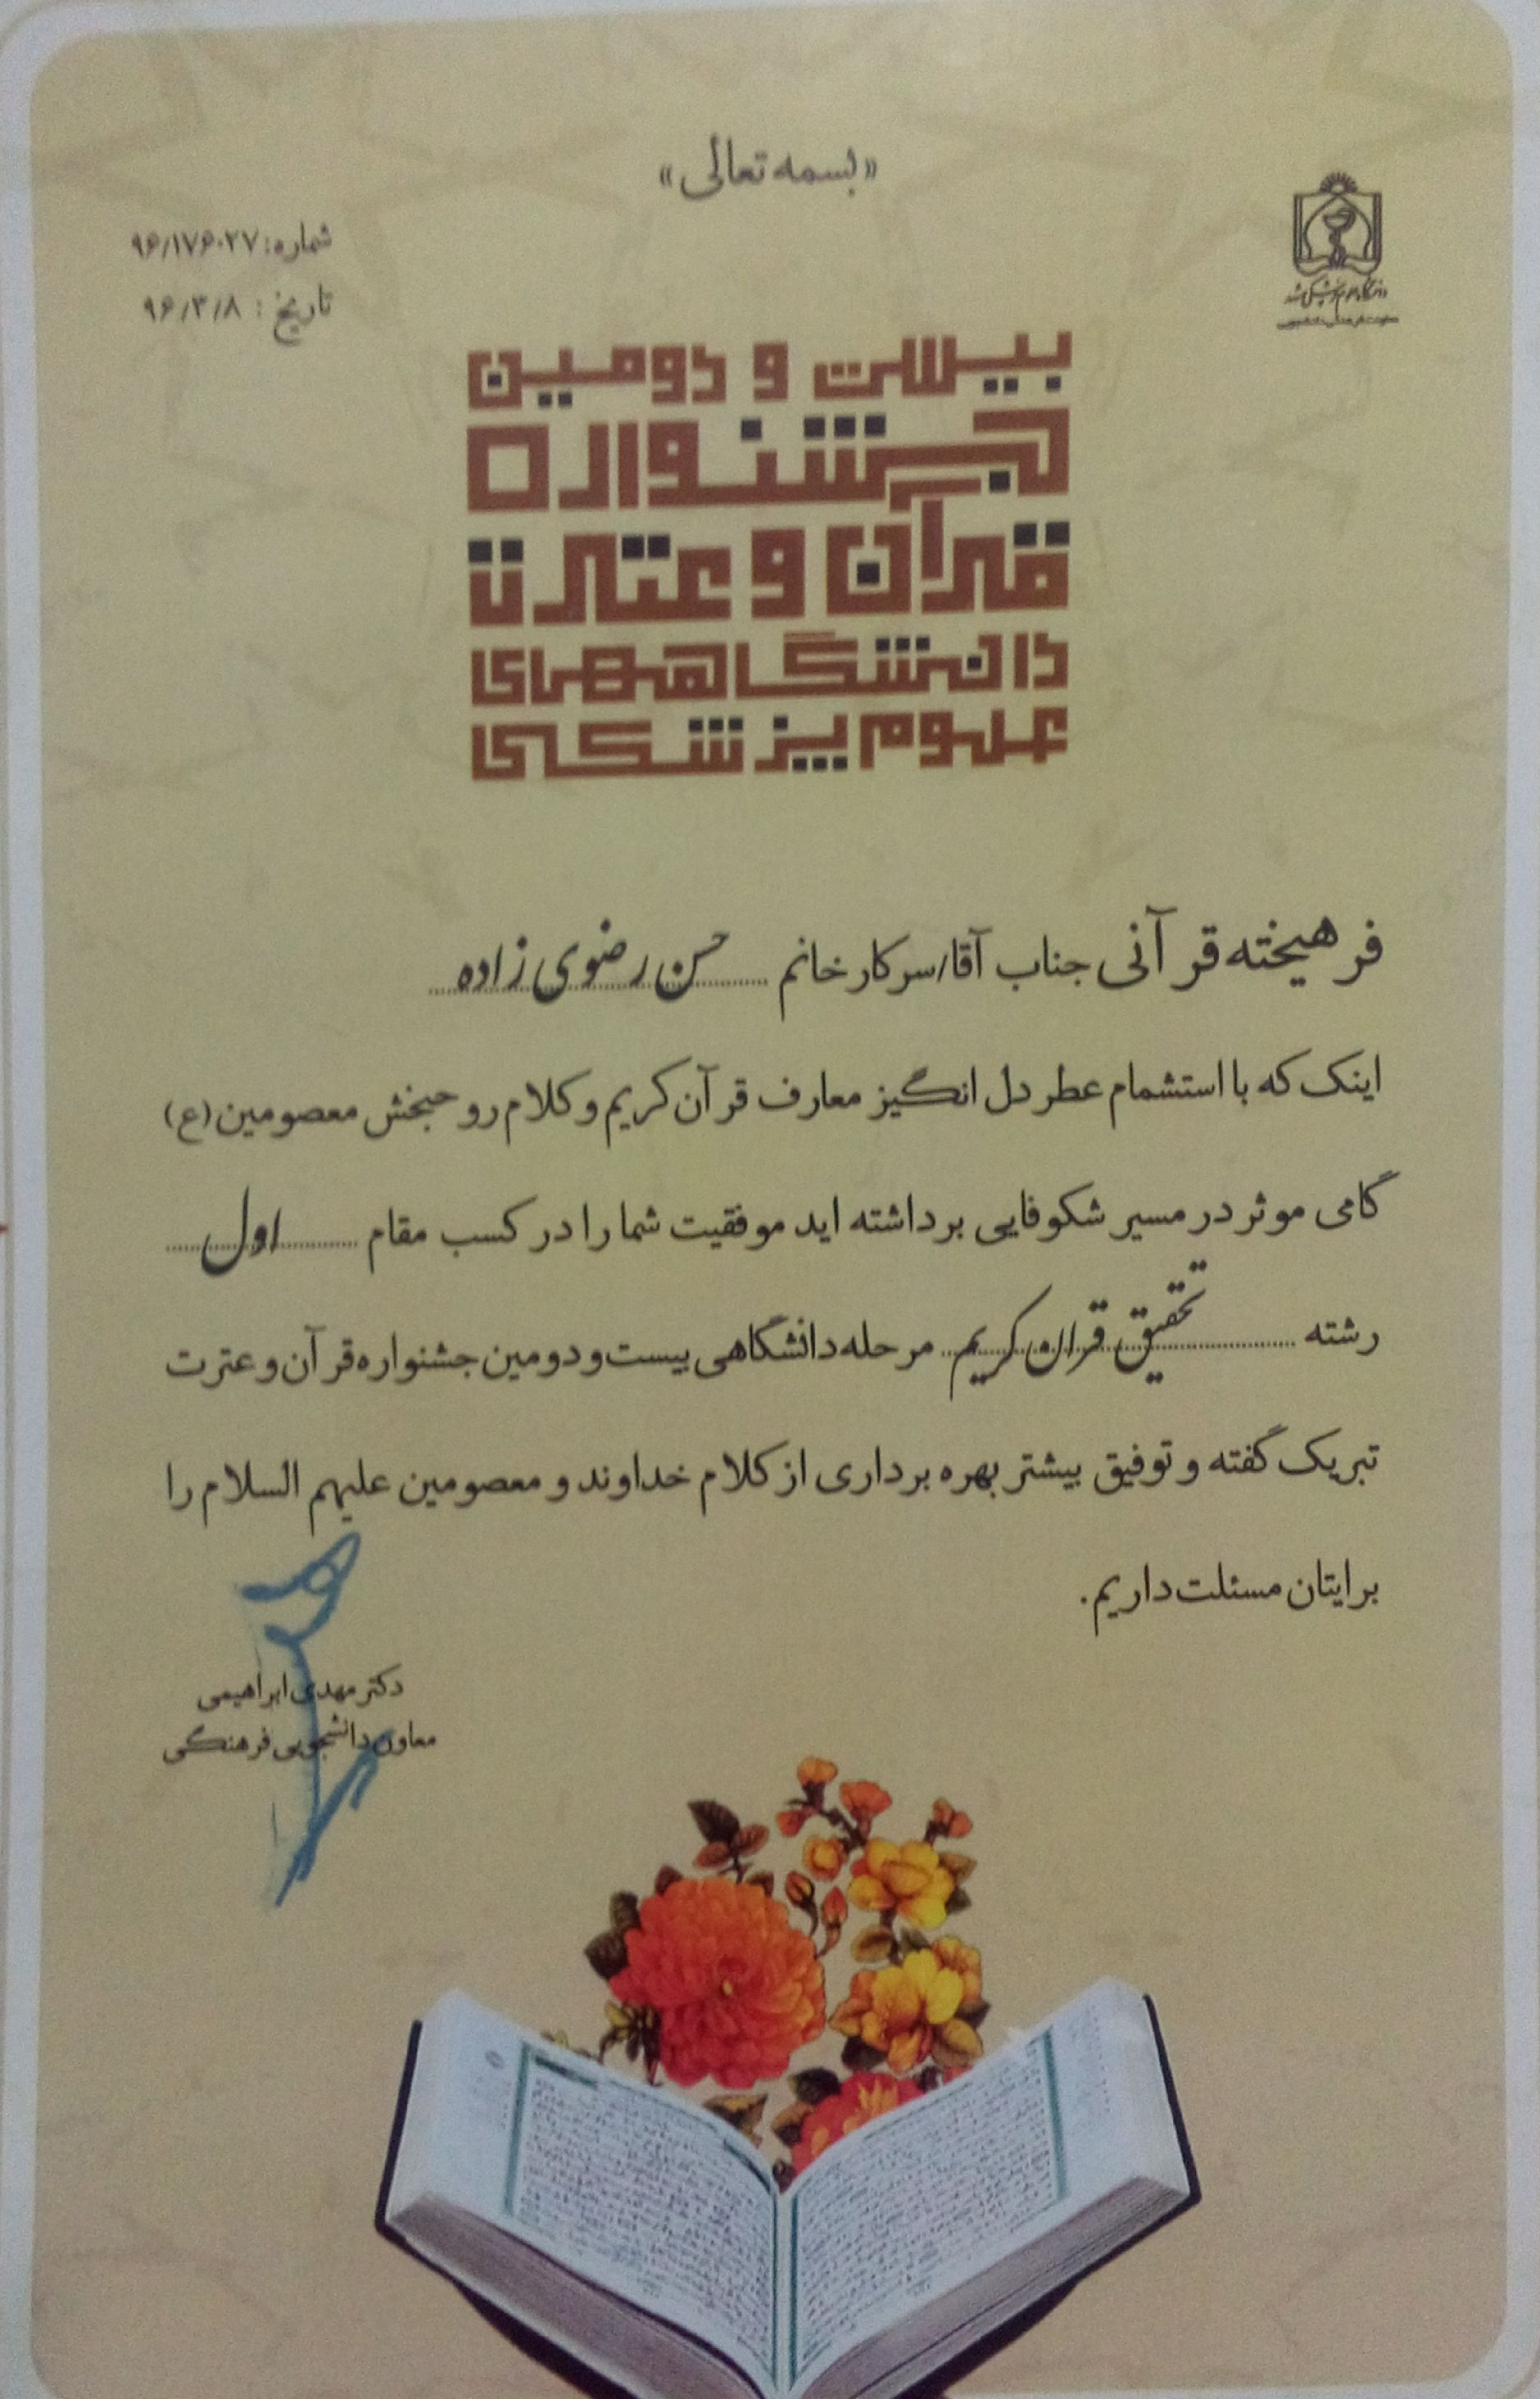 «بسمه تعالی»
شماره: ۹۶/۱۷۶۰۲۷
تاریخ: ۹۶/۳/۸
دانشگاه علوم پزشکی مشهد
بیست و دومین
جشنواره
قرآن و عترت
دانشگاههای
علوم پزشکی
فرهیخته قرآنی جناب آقا/سرکار خانم حسن رضوی زاده
اینک که با استشمام عطر دل انگیز معارف قرآن کریم و کلام روحبخش معصومین (ع)
گامی موثر در مسیر شکوفایی برداشته اید موفقیت شما را در کسب مقام اول
رشته تحقیق قران کریم مرحله دانشگاهی بیست و دومین جشنواره قرآن و عترت
تبریک گفته و توفیق بیشتر بهره برداری از کلام خداوند و معصومین علیهم السلام را
برایتان مسئلت داریم.
دکتر مهدی ابراهیمی
معاون دانشجویی فرهنگی